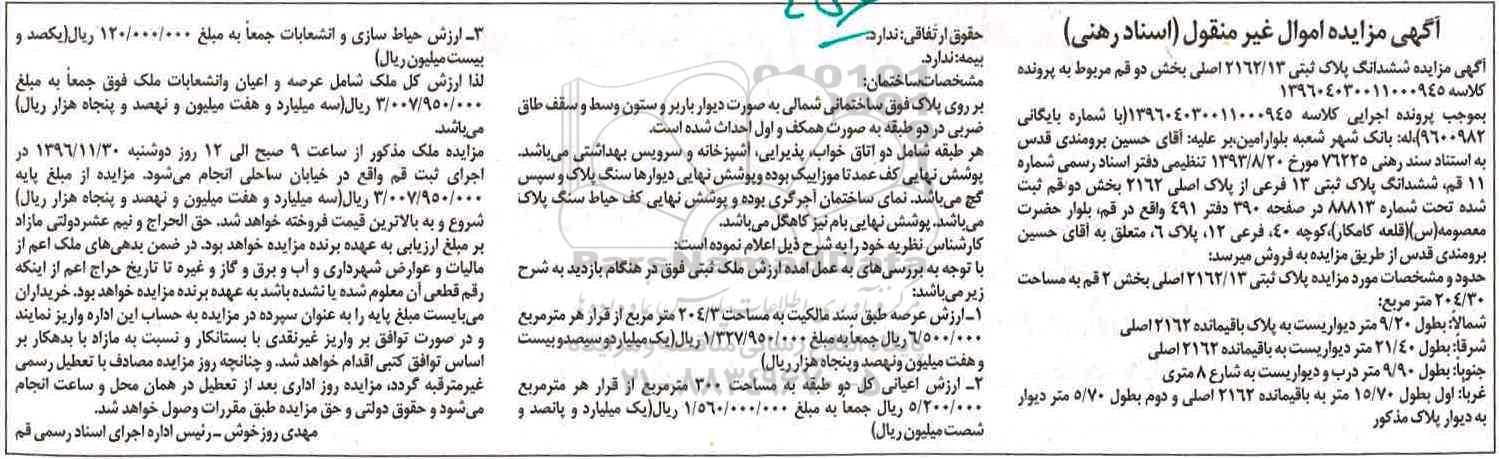 آگهی مزایده اموال غیر منقول (اسناد رهنی)
آگهی مزایده ششدانگ پلاک ثبتی ۲۱۶۲/۱۳ اصلی بخش دو قم مربوط به پرونده
کلاسه ۱۳۹۶۰۴۰۳۰۰۱۱۰۰۰۹۴۵
بموجب پرونده اجرایی کلاسه ۱۳۹۶۰۴۰۳۰۰۱۱۰۰۰۹۴۵(با شماره بایگانی
۹۶۰۰۹۸۲)،له: بانک شهر شعبه بلوارامین،بر علیه: آقای حسین برومندی قدس
به استناد سند رهنی ۷۶۲۲۵ مورخ ۱۳۹۳/۸/۲۰ تنظیمی دفتر اسناد رسمی شماره
۱۱ قم، ششدانگ پلاک ثبتی ۱۳ فرعی از پلاک اصلی ۲۱۶۲ بخش دو قم ثبت
شده تحت شماره ۸۸۸۱۳ در صفحه ۳۹۰ دفتر ۴۹۱ واقع در قم، بلوار حضرت
معصومه(س)(قلعه کامکار)،کوچه ۴۰، فرعی ۱۲، پلاک ۶، متعلق به آقای حسین
برومندی قدس از طریق مزایده به فروش میرسد:
حدود و مشخصات مورد مزایده پلاک ثبتی ۲۱۶۲/۱۳ اصلی بخش ۲ قم به مساحت
۲۰۴/۳۰ متر مربع:
شمالاً: بطول ۹/۲۰ متر دیواریست به پلاک باقیمانده ۲۱۶۲ اصلی
شرقاً: بطول ۲۱/۴۰ متر دیواریست به باقیمانده ۲۱۶۲ اصلی
جنوباً: بطول ۹/۹۰ متر درب و دیواریست به شارع ۸ متری
غرباً: اول بطول ۱۵/۷۰ متر به باقیمانده ۲۱۶۲ اصلی و دوم بطول ۵/۷۰ متر دیوار
به دیوار پلاک مذکور
حقوق ارتفاقی: ندارد.
بیمه: ندارد.
مشخصات ساختمان:
بر روی پلاک فوق ساختمانی شمالی به صورت دیوار باربر و ستون وسط و سقف طاق
ضربی در دو طبقه به صورت همکف و اول احداث شده است.
هر طبقه شامل دو اتاق خواب، پذیرایی، آشپزخانه و سرویس بهداشتی می‌باشد.
پوشش نهایی کف عمدتا موزاییک بوده وپوشش نهایی دیوارها سنگ پلاک و سپس
گچ می‌باشد. نمای ساختمان آجرگری بوده و پوشش نهایی کف حیاط سنگ پلاک
می‌باشد. پوشش نهایی بام نیز کاهگل می‌باشد.
کارشناس نظریه خود را به شرح ذیل اعلام نموده است:
با توجه به بررسی‌های به عمل آمده ارزش ملک ثبتی فوق در هنگام بازدید به شرح
زیر می‌باشد:
۱ـ ارزش عرصه طبق سند مالکیت به مساحت ۲۰۴/۳ متر مربع از قرار هر مترمربع
۶/۵۰۰/۰۰۰ ریال جمعاً به مبلغ ۱/۳۲۷/۹۵۰/۰۰۰ ریال(یک میلیارد و سیصد و بیست
و هفت میلیون و نهصد و پنجاه هزار ریال)
۲ـ ارزش اعیانی کل دو طبقه به مساحت ۳۰۰ مترمربع از قرار هر مترمربع
۵/۲۰۰/۰۰۰ ریال جمعاً به مبلغ ۱/۵۶۰/۰۰۰/۰۰۰ ریال(یک میلیارد و پانصد و
شصت میلیون ریال)
۳ـ ارزش حیاط سازی و انشعابات جمعاً به مبلغ ۱۲۰/۰۰۰/۰۰۰ ریال(یکصد و
بیست میلیون ریال)
لذا ارزش کل ملک شامل عرصه و اعیان وانشعابات ملک فوق جمعاً به مبلغ
۳/۰۰۷/۹۵۰/۰۰۰ ریال(سه میلیارد و هفت میلیون و نهصد و پنجاه هزار ریال)
می‌باشد.
مزایده ملک مذکور از ساعت ۹ صبح الی ۱۲ روز دوشنبه ۱۳۹۶/۱۱/۳۰ در
اجرای ثبت قم واقع در خیابان ساحلی انجام می‌شود. مزایده از مبلغ پایه
۳/۰۰۷/۹۵۰/۰۰۰ ریال(سه میلیارد و هفت میلیون و نهصد و پنجاه هزار ریال)
شروع و به بالاترین قیمت فروخته خواهد شد. حق الحراج و نیم عشردولتی مازاد
بر مبلغ ارزیابی به عهده برنده مزایده خواهد بود. در ضمن بدهی‌های ملک اعم از
مالیات و عوارض شهرداری و آب و برق و گاز و غیره تا تاریخ حراج اعم از اینکه
رقم قطعی آن معلوم شده یا نشده باشد به عهده برنده مزایده خواهد بود. خریداران
می‌بایست مبلغ پایه را به عنوان سپرده در مزایده به حساب این اداره واریز نمایند
و در صورت توافق بر واریز غیرنقدی با بستانکار و نسبت به مازاد با بدهکار بر
اساس توافق کتبی اقدام خواهد شد. و چنانچه روز مزایده مصادف با تعطیل رسمی
غیرمترقبه گردد، مزایده روز اداری بعد از تعطیل در همان محل و ساعت انجام
می‌شود و حقوق دولتی و حق مزایده طبق مقررات وصول خواهد شد.
مهدی روزخوش ـ رئیس اداره اجرای اسناد رسمی قم
ParsNamadData